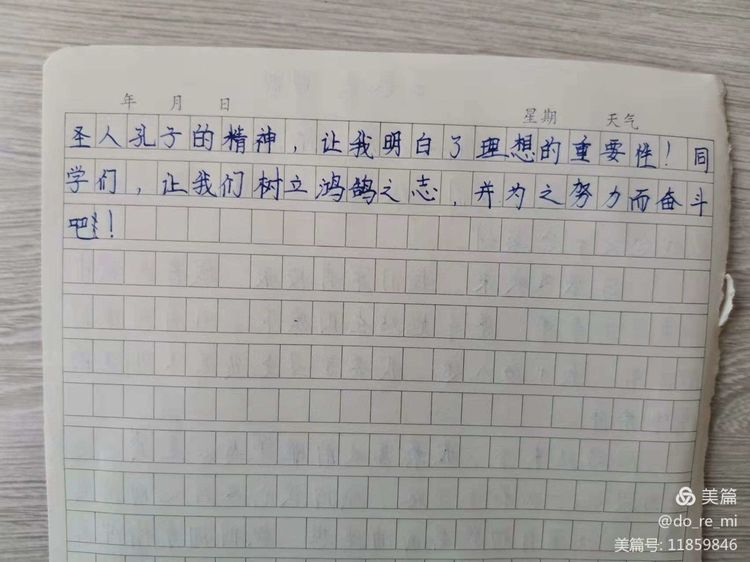 年 月 日 星期 天气
圣人孔子的精神，让我明白了理想的重要性！同
学们，让我们树立鸿鹄之志，并为之努力而奋斗
吧！
美篇
@do_re_mi
美篇号: 11859846